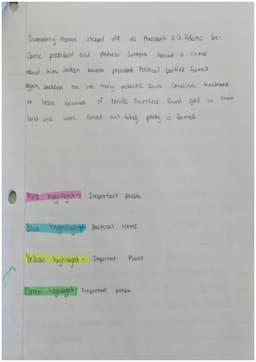 Summary: Monroe stepped off as President J.Q. Adams be-
came president and Andrew Jackson formed a rival
about him Jackson became president Political parties formed
again, Jackson ran into many problems South Carolina threatened
to leave because of tariffs Cherokee found gold on their
land and were forced out whig party is formed.
Pink highlight = Important people
Blue highlight = Political items
Yellow highlight = Important Places
Green highlight = Important